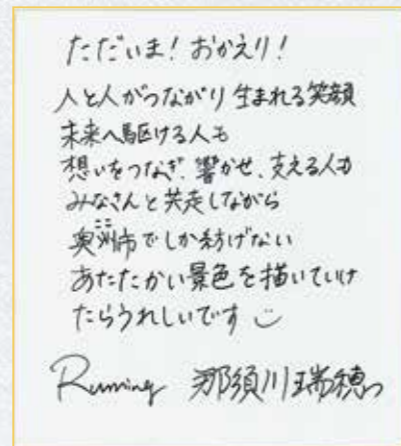 ただいま！おかえり！
人と人がつながり 生まれる笑顔
未来へ駆ける人も
想いをつなぎ、響かせ、支える人も
みなさんと共走しながら
ここ
奥州市でしか紡げない
あたたかい景色を描いていけ
たらうれしいです
Running 那須川瑞穂